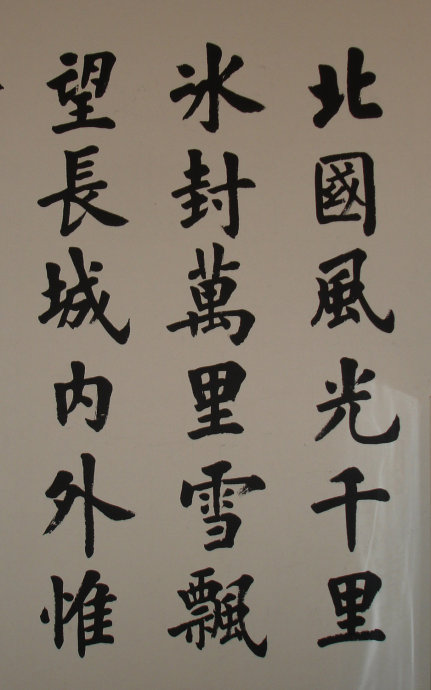 北國風光千里
氷封萬里雪飄
望長城内外惟